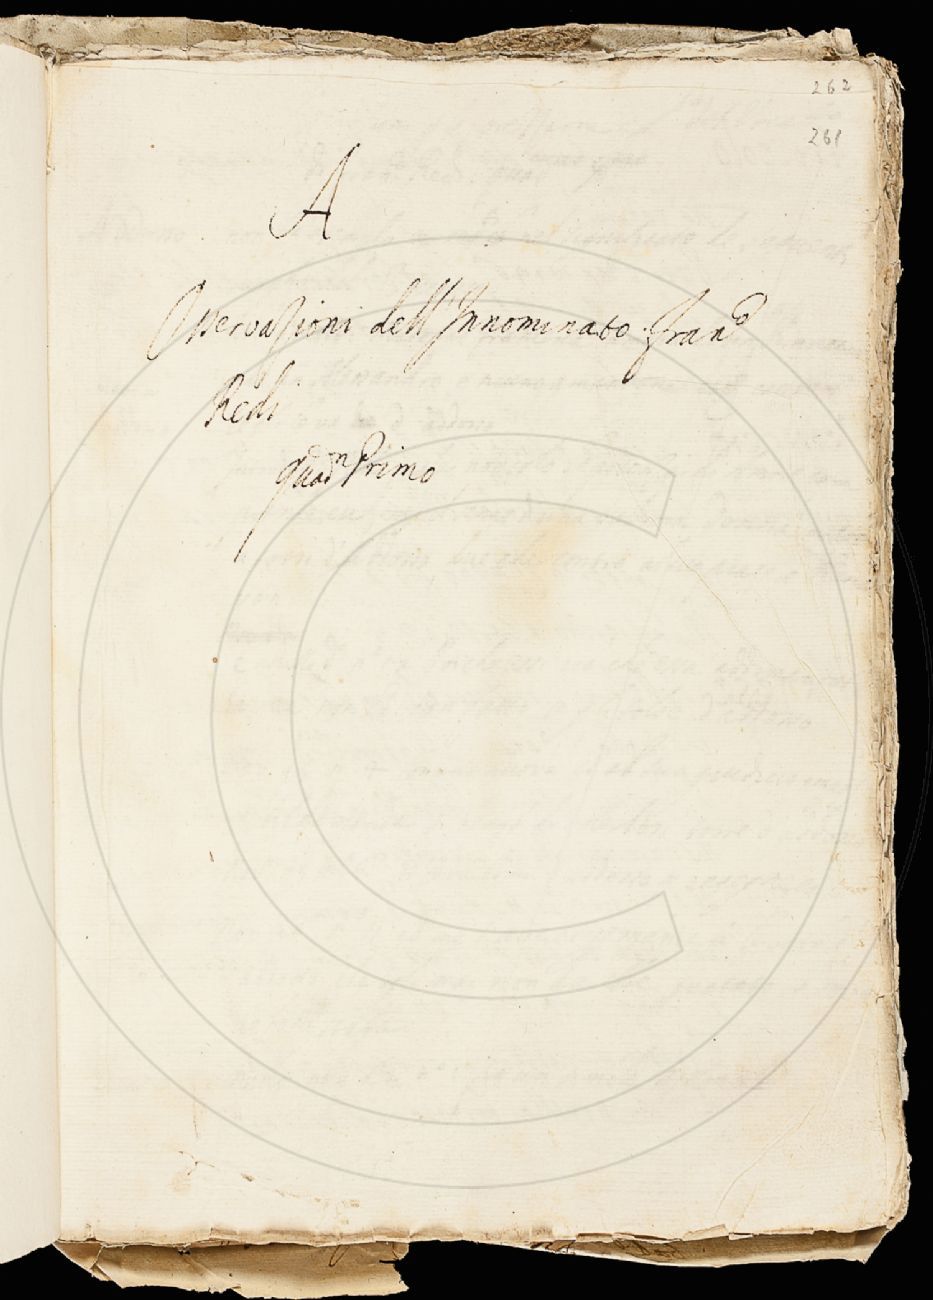 262
261
A
Osservazioni dell'Innominato Fran.º
Redi
quad.n Primo